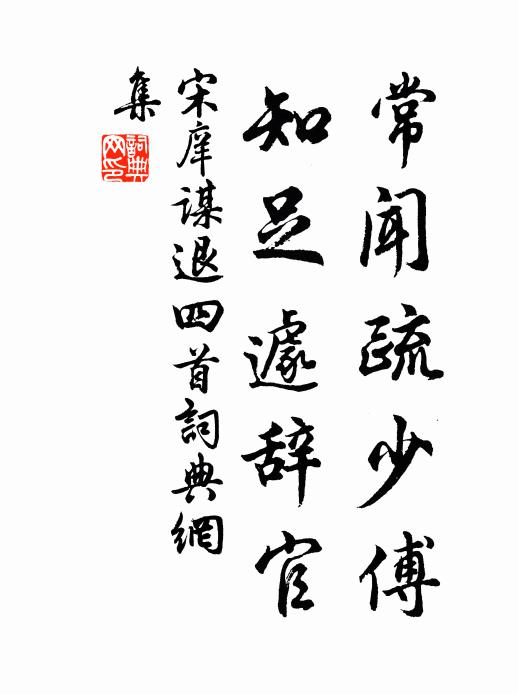 常闻疏少傅
知足遽辞官
宋庠谋退四首詞典網
集
詞典
网印